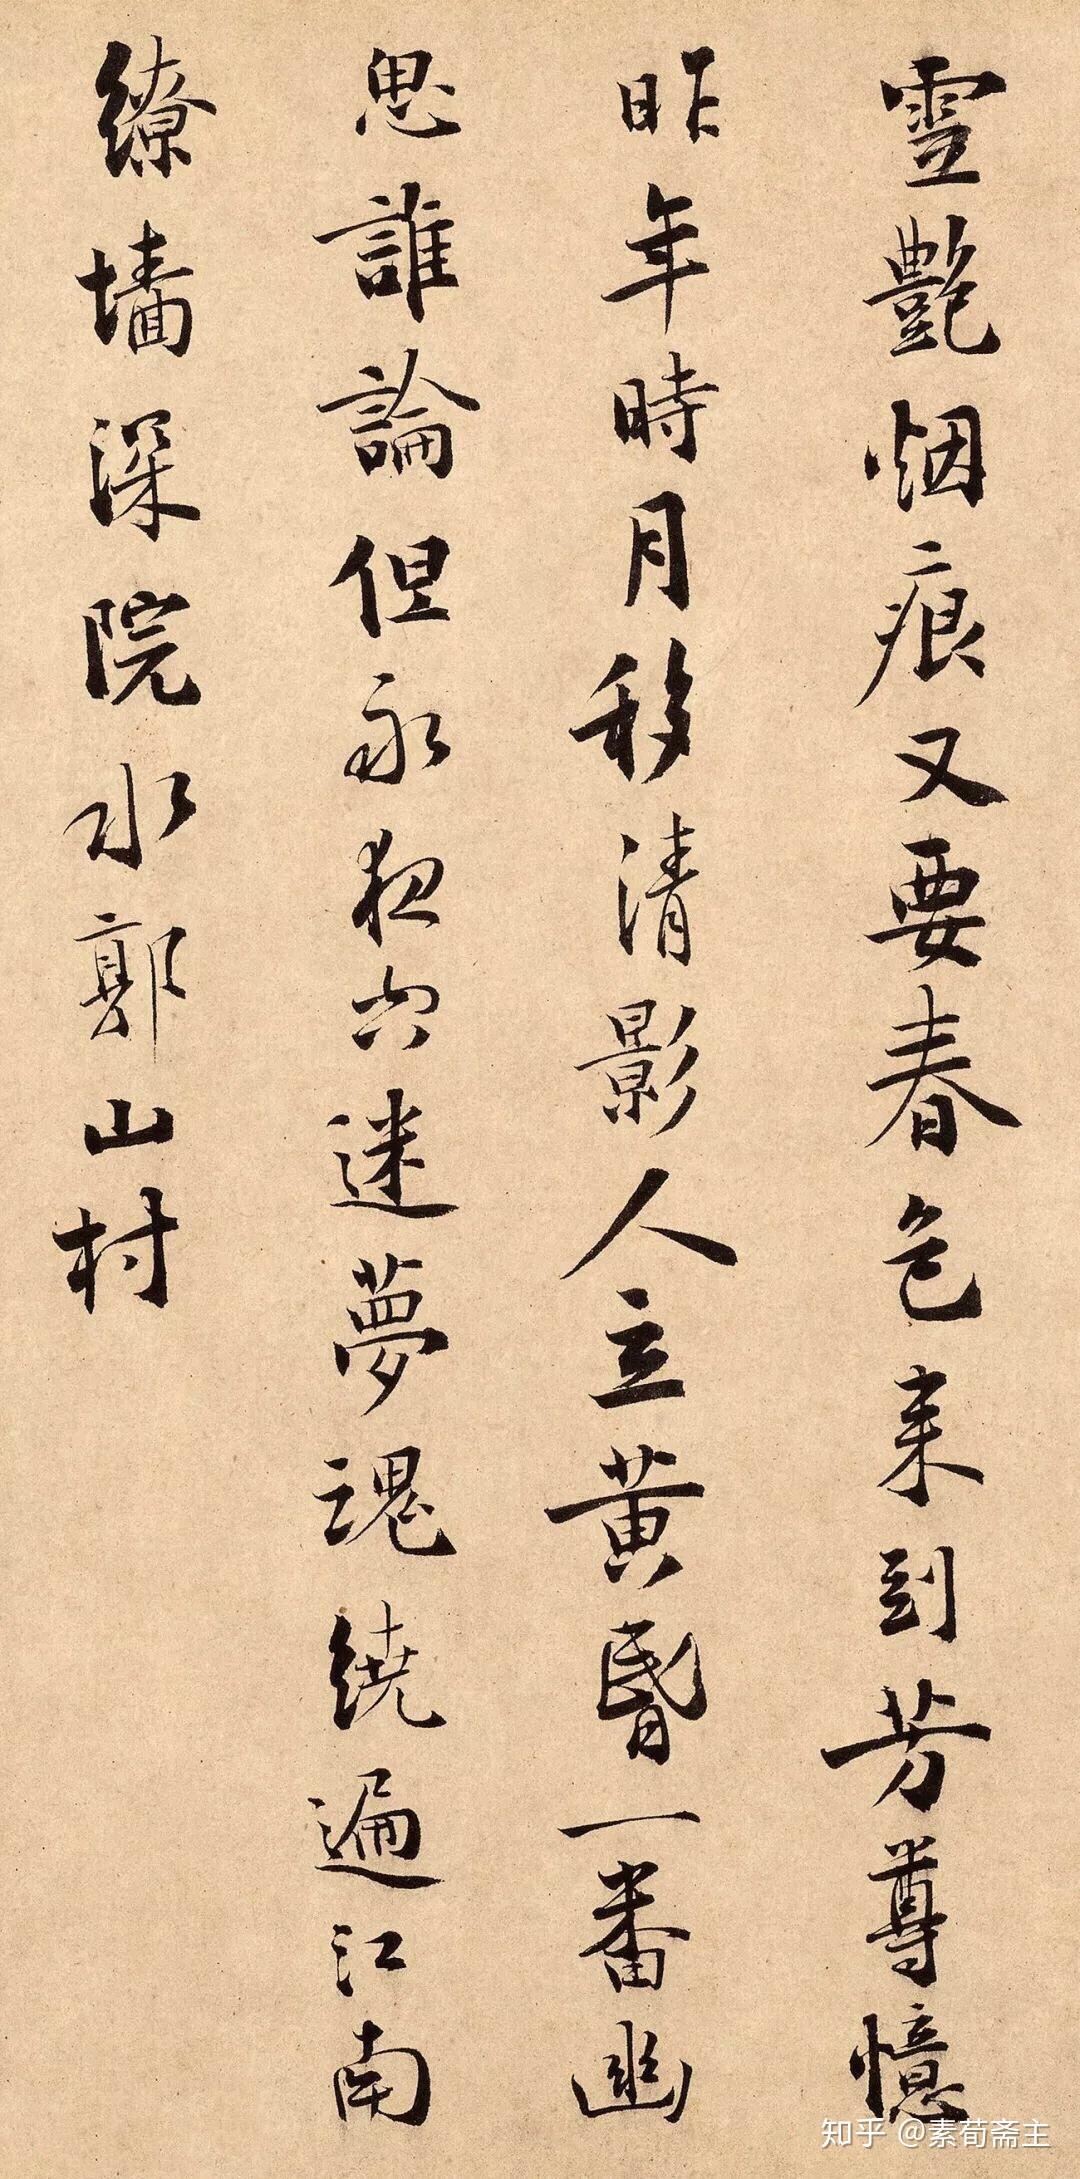 雪艷烟痕又要春色来到芳尊憶
昨年時月移清影人立黄昏一番幽
思誰論但永夜空迷夢魂繞遍江南
繚墙深院水郭山村
知乎 @素荀斋主